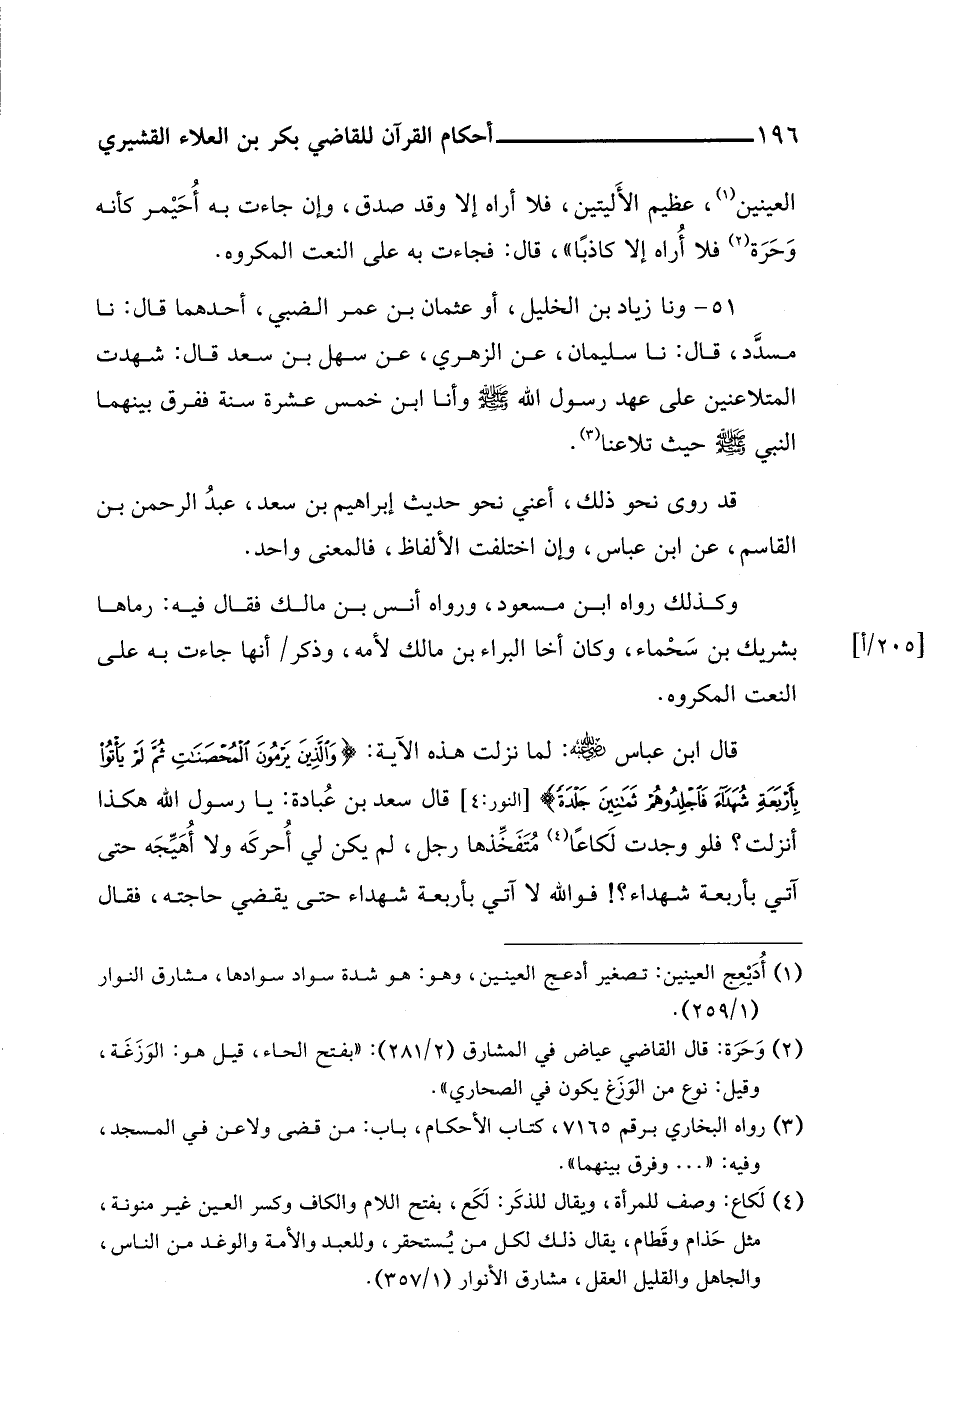 ١٩٦ أحكام القرآن للقاضي بكر بن العلاء القشيري
العينين(١)، عظيم الأَليتين، فلا أراه إلا وقد صدق، وإن جاءت به أُحَيْمر كأنه
وَحَرَة(٢) فلا أُراه إلا كاذبًا»، قال: فجاءت به على النعت المكروه.
٥١- ونا زياد بن الخليل، أو عثمان بن عمر الضبي، أحدهما قال: نا
مسدَّد، قال: نا سليمان، عن الزهري، عن سهل بن سعد قال: شهدت
المتلاعنين على عهد رسول الله ﷺ وأنا ابن خمس عشرة سنة ففرق بينهما
النبي ﷺ حيث تلاعنا(٣).
قد روى نحو ذلك، أعني نحو حديث إبراهيم بن سعد، عبدُ الرحمن بن
القاسم، عن ابن عباس، وإن اختلفت الألفاظ، فالمعنى واحد.
وكذلك رواه ابن مسعود، ورواه أنس بن مالك فقال فيه: رماها
بشريك بن سَحْماء، وكان أخا البراء بن مالك لأمه، وذكر/ أنها جاءت به على [٢٠٥/أ]
النعت المكروه.
قال ابن عباس ﵁: لما نزلت هذه الآية: ﴿وَٱلَّذِينَ يَرْمُونَ ٱلْمُحْصَنَٰتِ ثُمَّ لَمْ يَأْتُوا۟
بِأَرْبَعَةِ شُهَدَآءَ فَٱجْلِدُوهُمْ ثَمَٰنِينَ جَلْدَةً﴾ [النور:٤] قال سعد بن عُبادة: يا رسول الله هكذا
أنزلت؟ فلو وجدت لَكاعًا(٤) مُتَفَخِّذها رجل، لم يكن لي أُحركَه ولا أُهَيِّجَه حتى
آتي بأربعة شهداء؟! فوالله لا آتي بأربعة شهداء حتى يقضي حاجته، فقال
(١) أُدَيْعِج العينين: تصغير أدعج العينين، وهو: هو شدة سواد سوادها، مشارق النوار
(٢٥٩/١).
(٢) وَحَرَة: قال القاضي عياض في المشارق (٢٨١/٢): «بفتح الحاء، قيل هو: الوَزَغَة،
وقيل: نوع من الوَزَغ يكون في الصحاري».
(٣) رواه البخاري برقم ٧١٦٥، كتاب الأحكام، باب: من قضى ولاعن في المسجد،
وفيه: «... وفرق بينهما».
(٤) لَكاع: وصف للمرأة، ويقال للذكَر: لَكَع، بفتح اللام والكاف وكسر العين غير منونة،
مثل حَذام وقَطام، يقال ذلك لكل من يُستحقر، وللعبد والأمة والوغد من الناس،
والجاهل والقليل العقل، مشارق الأنوار (٣٥٧/١).